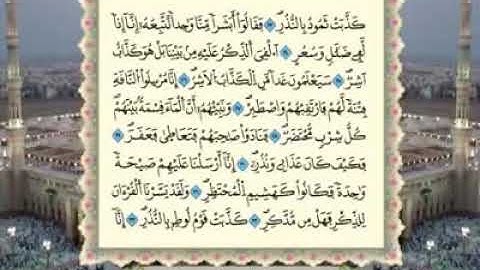 كَذَّبَتْ ثَمُودُ بِالنُّذُرِ ۝ فَقَالُوا أَبَشَرًا مِّنَّا وَاحِدًا نَّتَّبِعُهُ إِنَّا إِذًا
لَّفِي ضَلَالٍ وَسُعُرٍ ۝ أَءُلْقِيَ الذِّكْرُ عَلَيْهِ مِن بَيْنِنَا بَلْ هُوَ كَذَّابٌ
أَشِرٌ ۝ سَيَعْلَمُونَ غَدًا مَّنِ الْكَذَّابُ الْأَشِرُ ۝ إِنَّا مُرْسِلُوا النَّاقَةِ
فِتْنَةً لَّهُمْ فَارْتَقِبْهُمْ وَاصْطَبِرْ ۝ وَنَبِّئْهُمْ أَنَّ الْمَاءَ قِسْمَةٌ بَيْنَهُمْ
كُلُّ شِرْبٍ مُّحْتَضَرٌ ۝ فَنَادَوْا صَاحِبَهُمْ فَتَعَاطَىٰ فَعَقَرَ ۝
فَكَيْفَ كَانَ عَذَابِي وَنُذُرِ ۝ إِنَّا أَرْسَلْنَا عَلَيْهِمْ صَيْحَةً
وَاحِدَةً فَكَانُوا كَهَشِيمِ الْمُحْتَظِرِ ۝ وَلَقَدْ يَسَّرْنَا الْقُرْآنَ
لِلذِّكْرِ فَهَلْ مِن مُّدَّكِرٍ ۝ كَذَّبَتْ قَوْمُ لُوطٍ بِالنُّذُرِ ۝ إِنَّا